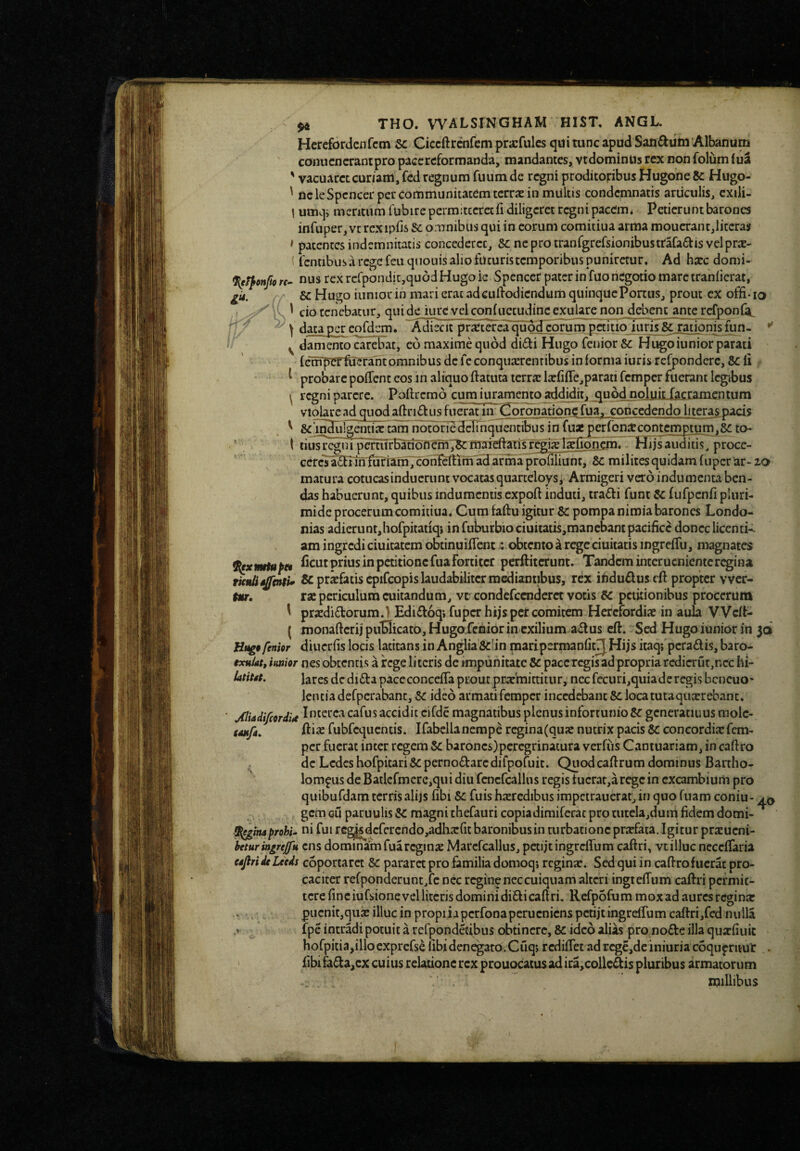 94 THO. VVALSINGHAM HIST. ANGL.
Herefordensem & Cicestrensem præsules qui tunc apud Sanctum Albanum
conuenerant pro pace reformanda, mandantes, vt dominus rex non solùm suã
vacuaret curiam, sed regnum suum de regni proditoribus Hugone & Hugo-
ne le Spencer per communitatem terræ in multis condemnatis articulis, exili-
umq; meritum subire permitteret si diligeret regni pacem. Petierunt barones
insuper, vt rex ipsis & omnibus qui in eorum comitiua arma mouerant, literas
patentes indemnitatis concederet, & ne pro transgressionibus trãsactis vel præ-
sentibus à rege seu quouis alio futuris temporibus puniretur. Ad hæc domi-
Responsio re- nus rex respondit, quòd Hugo le Spencer pater in suo negotio mare transierat,
gis. & Hugo iunior in mari erat ad custodiendum quinque Portus, prout ex offi- 10
cio tenebatur, qui de iure vel consuetudine exulare non debent ante responsa
data per eosdem. Adiecit præterea quòd eorum petitio iuris & rationis fun-
damento carebat, eò maximè quòd dicti Hugo senior & Hugo iunior parati
semper fuerant omnibus de se conquærentibus in forma iuris respondere, & si
probare possent eos in aliquo statuta terræ læsisse, parati semper fuerant legibus
regni parere. Postremò cum iuramento addidit, quòd noluit sacramentum
violare ad quod astrictus fuerat in Coronatione sua, concedendo literas pacis
& indulgentiæ tam notoriè delinquentibus in suæ personæ contemptum, & to-
tius regni perturbationem, & maiestatis regiæ læsionem. Hijs auditis, proce-
ceres acti in furiam, confestim ad arma prosiliunt, & milites quidam super ar- 20
matura cotucas induerunt vocatas quarteloys, Armigeri verò indumenta ben-
das habuerunt, quibus indumentis expost induti, tracti sunt & suspensi pluri-
mi de procerum comitiua. Cum fastu igitur & pompa nimia barones Londo-
nias adierunt, hospitatiq; in suburbio ciuitatis, manebant pacificè donec licenti-
am ingredi ciuitatem obtinuissent: obtento à rege ciuitatis ingressu, magnates
Rex metu pe- sicut prius in petitione sua fortiter perstiterunt. Tandem interueniente regina
riculi assenti- & præfatis episcopis laudabiliter mediantibus, rex inductus est propter vver-
tur. ræ periculum euitandum, vt condescenderet votis & petitionibus procerum
prædictorum. Edictóq; super hijs per comitem Herefordiæ in aula VVest-
monasterij publicato, Hugo senior in exilium actus est. Sed Hugo iunior in 30
Hugo senior diuersis locis latitans in Anglia & in mari permansit. Hijs itaq; peractis, baro-
exulat, iunior nes obtentis à rege literis de impunitate & pace regis ad propria redierũt, nec hi-
latitat. lares de dicta pace concessa prout præmittitur, nec securi, quia de regis beneuo-
lentia desperabant, & ideò armati semper incedebant & loca tuta quærebant.
Alia discordiæ Interea casus accidit eisdẽ magnatibus plenus infortunio & generatiuus mole-
causa. stiæ subsequentis. Isabella nempè regina (quæ nutrix pacis & concordiæ sem-
per fuerat inter regem & barones) peregrinatura versùs Cantuariam, in castro
de Ledes hospitari & pernoctare disposuit. Quod castrum dominus Bartho-
lomęus de Batlesmere, qui diu senescallus regis fuerat, à rege in excambium pro
quibusdam terris alijs sibi & suis hæredibus impetrauerat, in quo suam coniu- 40
gem cũ paruulis & magni thesauri copia dimiserat pro tutela, dum fidem domi-
Regina prohi- ni sui regis deserendo, adhæsit baronibus in turbatione præfata. Igitur præueni-
betur ingressu ens dominam suã reginæ Marescallus, petijt ingressum castri, vt illuc necessaria
castri de Leeds cõportaret & pararet pro familia domoq; reginæ. Sed qui in castro fuerãt pro-
caciter responderunt, se nec reginę nec cuiquam alteri ingressum castri permit-
tere sine iussione vel literis domini dicti castri. Resposum mox ad aures reginæ
puenit, quæ illuc in propria persona perueniens petijt ingressum castri, sed nulla
spe intrãdi potuit à respondẽtibus obtinere, & ideò aliàs pro nocte illa quæsiuit
hospitia, illo expressè sibi denegato. Cũq; redisset ad regẽ, de iniuria cõquęritur
sibi facta, ex cuius relatione rex prouocatus ad irã, collectis pluribus armatorum
millibus